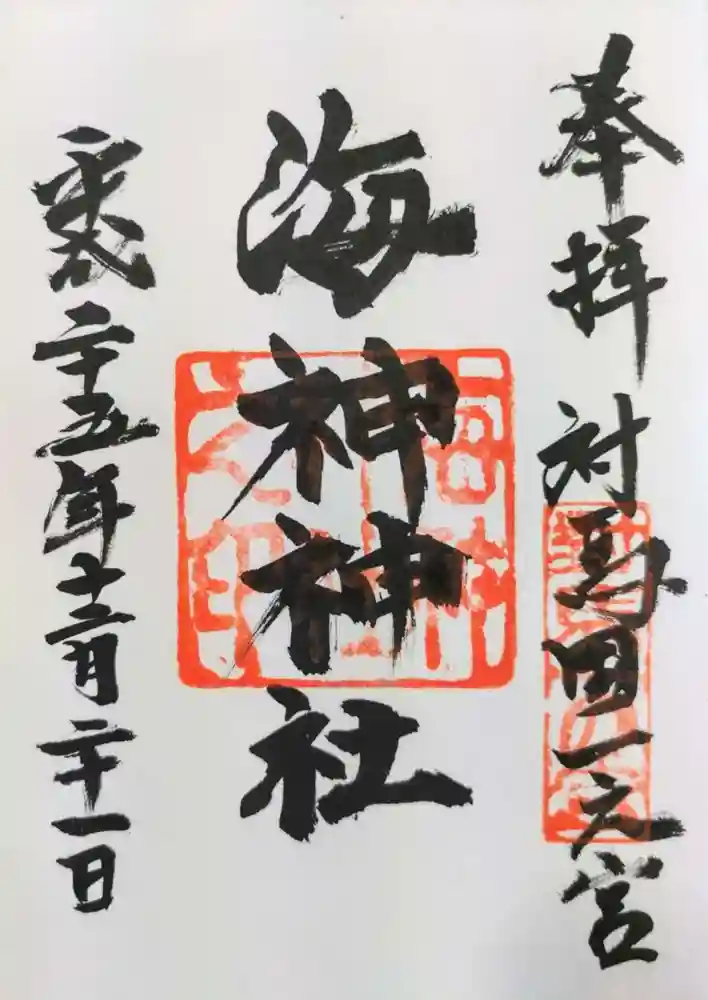 奉拝 対馬国一之宮
海神神社
平成二十五年十二月二十一日